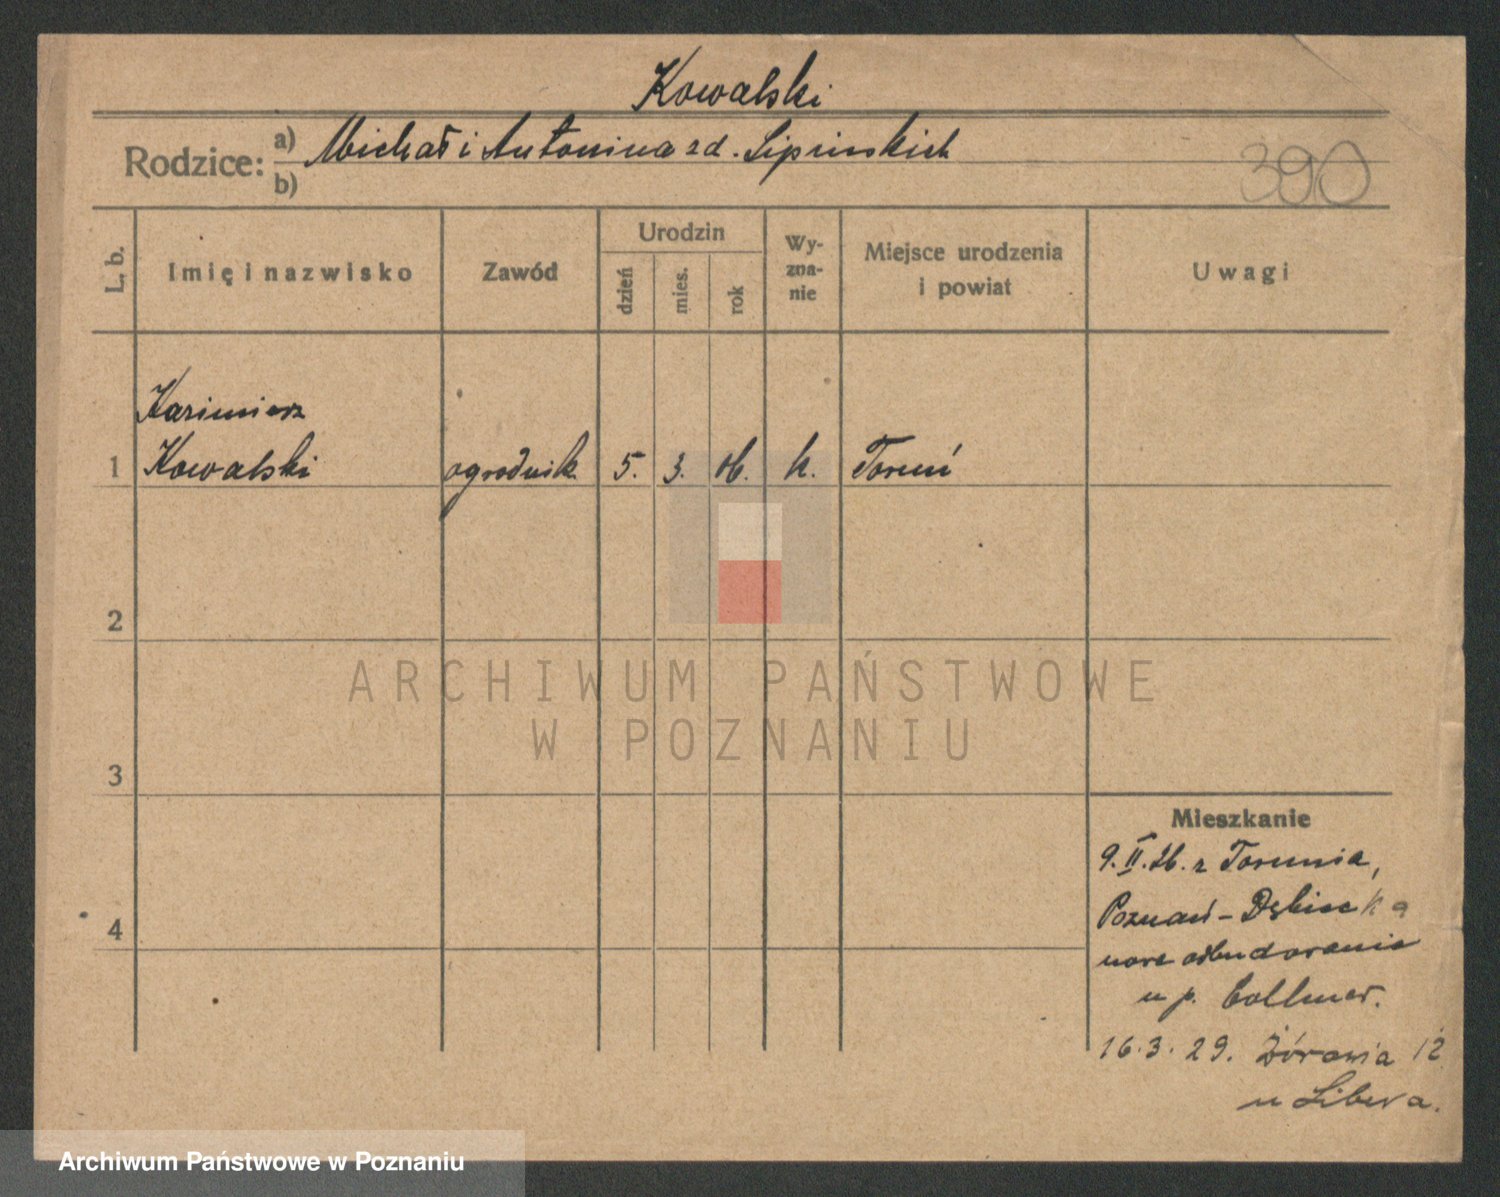 Kowalski
Rodzice: a) Michał i Antonina z d. Lipińskich
b)
390
L. b.
Imię i nazwisko
Zawód
Urodzin
dzień
mies.
rok
Wy-
zna-
nie
Miejsce urodzenia
i powiat
Uwagi
Kazimierz
1 Kowalski ogrodnik 5. 3. 06. k. Toruń
2
3
4
Mieszkanie
9.II.26. z Torunia,
Poznań - Dębiecka
nowe odbudowanie
u p.
16.3.29. Żórawia 12
u Libera.
ARCHIWUM PAŃSTWOWE
W POZNANIU
Archiwum Państwowe w Poznaniu